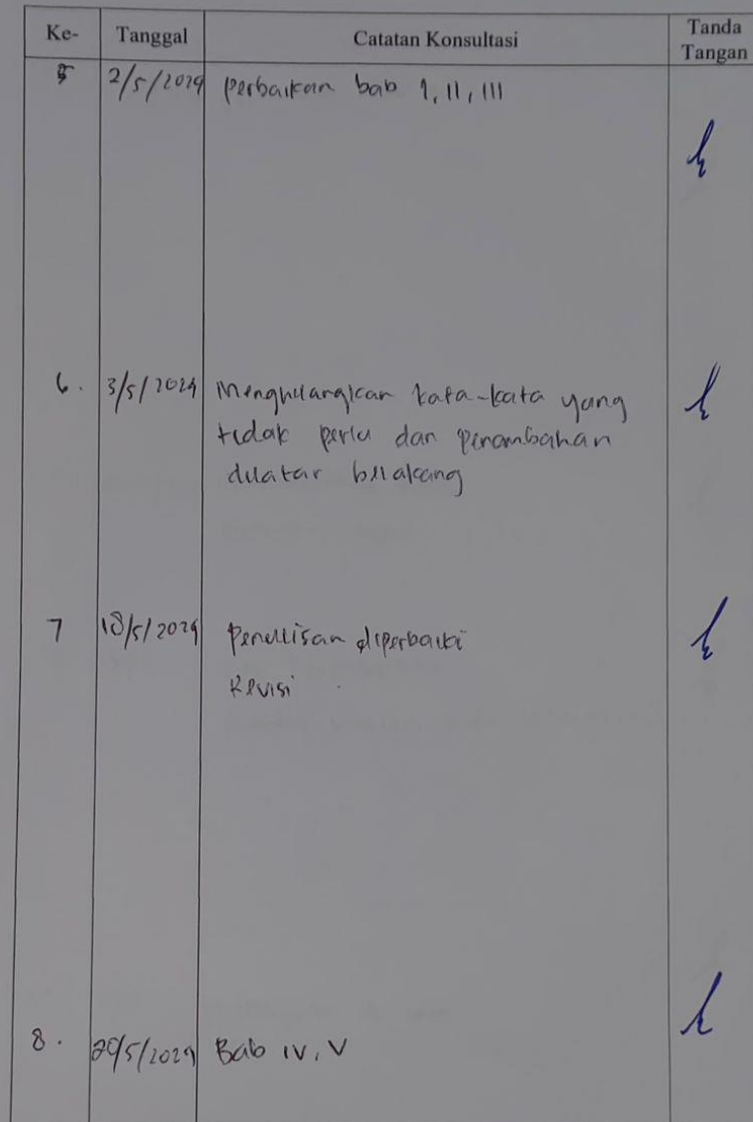 Ke- Tanggal Catatan Konsultasi Tanda Tangan
5 2/5/2024 Perbaikan bab I, II, III
6. 3/5/2024 Menghilangkan kata-kata yang
tidak perlu dan penambahan
dilatar belakang
7 18/5/2024 Penulisan diperbaiki
Revisi
8. /5/2024 Bab IV, V